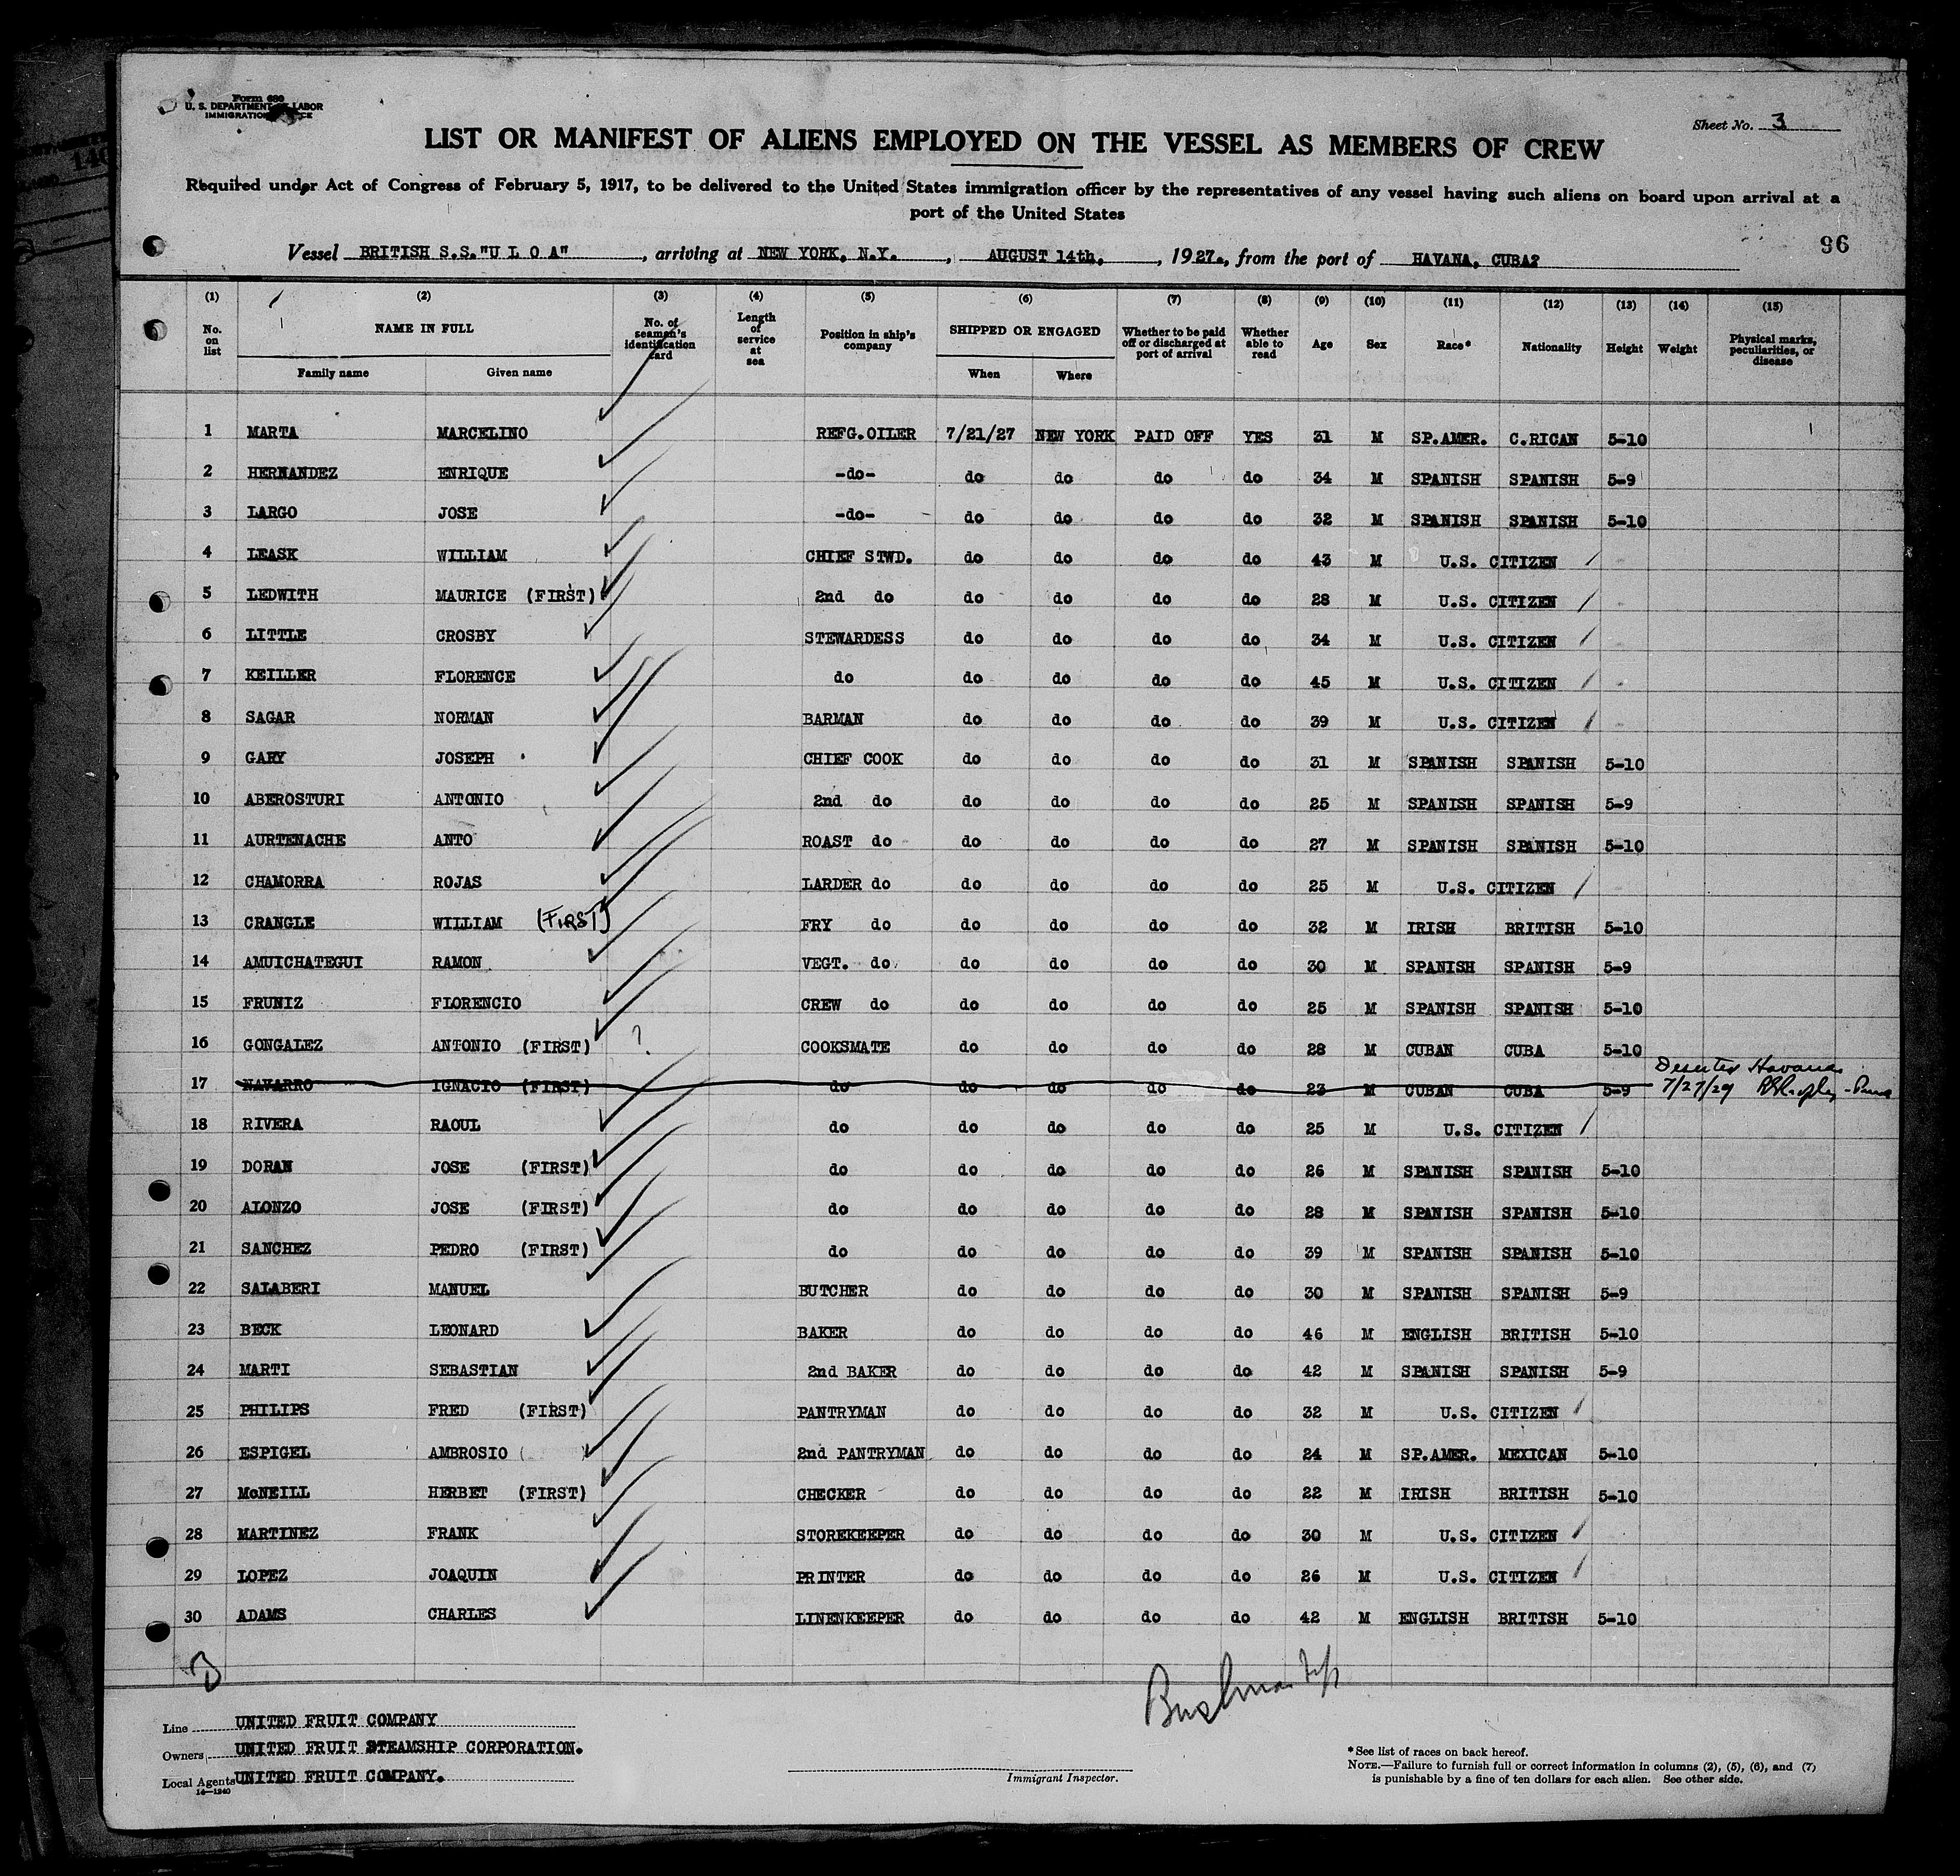 Form 680
U. S. DEPARTMENT OF LABOR
IMMIGRATION
Sheet No. 3
LIST OR MANIFEST OF ALIENS EMPLOYED ON THE VESSEL AS MEMBERS OF CREW
Required under Act of Congress of February 5, 1917, to be delivered to the United States immigration officer by the representatives of any vessel having such aliens on board upon arrival at a
port of the United States
96
Vessel BRITISH S.S."U L O A", arriving at NEW YORK, N.Y., AUGUST 14th, 1927., from the port of HAVANA, CUBA?
(1) (2) (3) (4) (5) (6) (7) (8) (9) (10) (11) (12) (13) (14) (15)
No. on list NAME IN FULL Family name Given name No. of seaman's identification card Length of service at sea Position in ship's company SHIPPED OR ENGAGED When Where Whether to be paid off or discharged at port of arrival Whether able to read Age Sex Race* Nationality Height Weight Physical marks, peculiarities, or disease
1 MARTA MARCELINO REFG.OILER 7/21/27 NEW YORK PAID OFF YES 31 M SP.AMER. C.RICAN 5-10
2 HERNANDEZ ENRIQUE -do- do do do do 34 M SPANISH SPANISH 5-9
3 LARGO JOSE -do- do do do do 32 M SPANISH SPANISH 5-10
4 LEASK WILLIAM CHIEF STWD. do do do do 43 M U.S. CITIZEN
5 LEDWITH MAURICE (FIRST) 2nd do do do do do 28 M U.S. CITIZEN
6 LITTLE CROSBY STEWARDESS do do do do 34 M U.S. CITIZEN
7 KEILLER FLORENCE do do do do do 45 M U.S. CITIZEN
8 SAGAR NORMAN BARMAN do do do do 39 M U.S. CITIZEN
9 GARY JOSEPH CHIEF COOK do do do do 31 M SPANISH SPANISH 5-10
10 ABEROSTURI ANTONIO 2nd do do do do do 25 M SPANISH SPANISH 5-9
11 AURTENACHE ANTO ROAST do do do do do 27 M SPANISH SPANISH 5-10
12 CHAMORRA ROJAS LARDER do do do do do 25 M U.S. CITIZEN
13 CRANGLE WILLIAM (FIRST) FRY do do do do do 32 M IRISH BRITISH 5-10
14 AMUICHATEGUI RAMON VEGT. do do do do do 30 M SPANISH SPANISH 5-9
15 FRUNIZ FLORENCIO CREW do do do do do 25 M SPANISH SPANISH 5-10
16 GONGALEZ ANTONIO (FIRST) ? COOKSMATE do do do do 28 M CUBAN CUBA 5-10
17 NAVARRO IGNACIO (FIRST) do do do do do 23 M CUBAN CUBA 5-9 Deserted Havana
7/27/27
18 RIVERA RAOUL do do do do do 25 M U.S. CITIZEN
19 DORAN JOSE (FIRST) do do do do do 26 M SPANISH SPANISH 5-10
20 ALONZO JOSE (FIRST) do do do do do 28 M SPANISH SPANISH 5-10
21 SANCHEZ PEDRO (FIRST) do do do do do 39 M SPANISH SPANISH 5-10
22 SALABERI MANUEL BUTCHER do do do do 30 M SPANISH SPANISH 5-9
23 BECK LEONARD BAKER do do do do 46 M ENGLISH BRITISH 5-10
24 MARTI SEBASTIAN 2nd BAKER do do do do 42 M SPANISH SPANISH 5-9
25 PHILIPS FRED (FIRST) PANTRYMAN do do do do 32 M U.S. CITIZEN
26 ESPIGEL AMBROSIO ( ) 2nd PANTRYMAN do do do do 24 M SP.AMER. MEXICAN 5-10
27 McNEILL HERBET (FIRST) CHECKER do do do do 22 M IRISH BRITISH 5-10
28 MARTINEZ FRANK STOREKEEPER do do do do 30 M U.S. CITIZEN
29 LOPEZ JOAQUIN PRINTER do do do do 26 M U.S. CITIZEN
30 ADAMS CHARLES LINENKEEPER do do do do 42 M ENGLISH BRITISH 5-10
Line UNITED FRUIT COMPANY
Owners UNITED FRUIT STEAMSHIP CORPORATION.
Local Agents UNITED FRUIT COMPANY.
14—1240
Immigrant Inspector.
*See list of races on back hereof.
NOTE.—Failure to furnish full or correct information in columns (2), (5), (6), and (7)
is punishable by a fine of ten dollars for each alien. See other side.